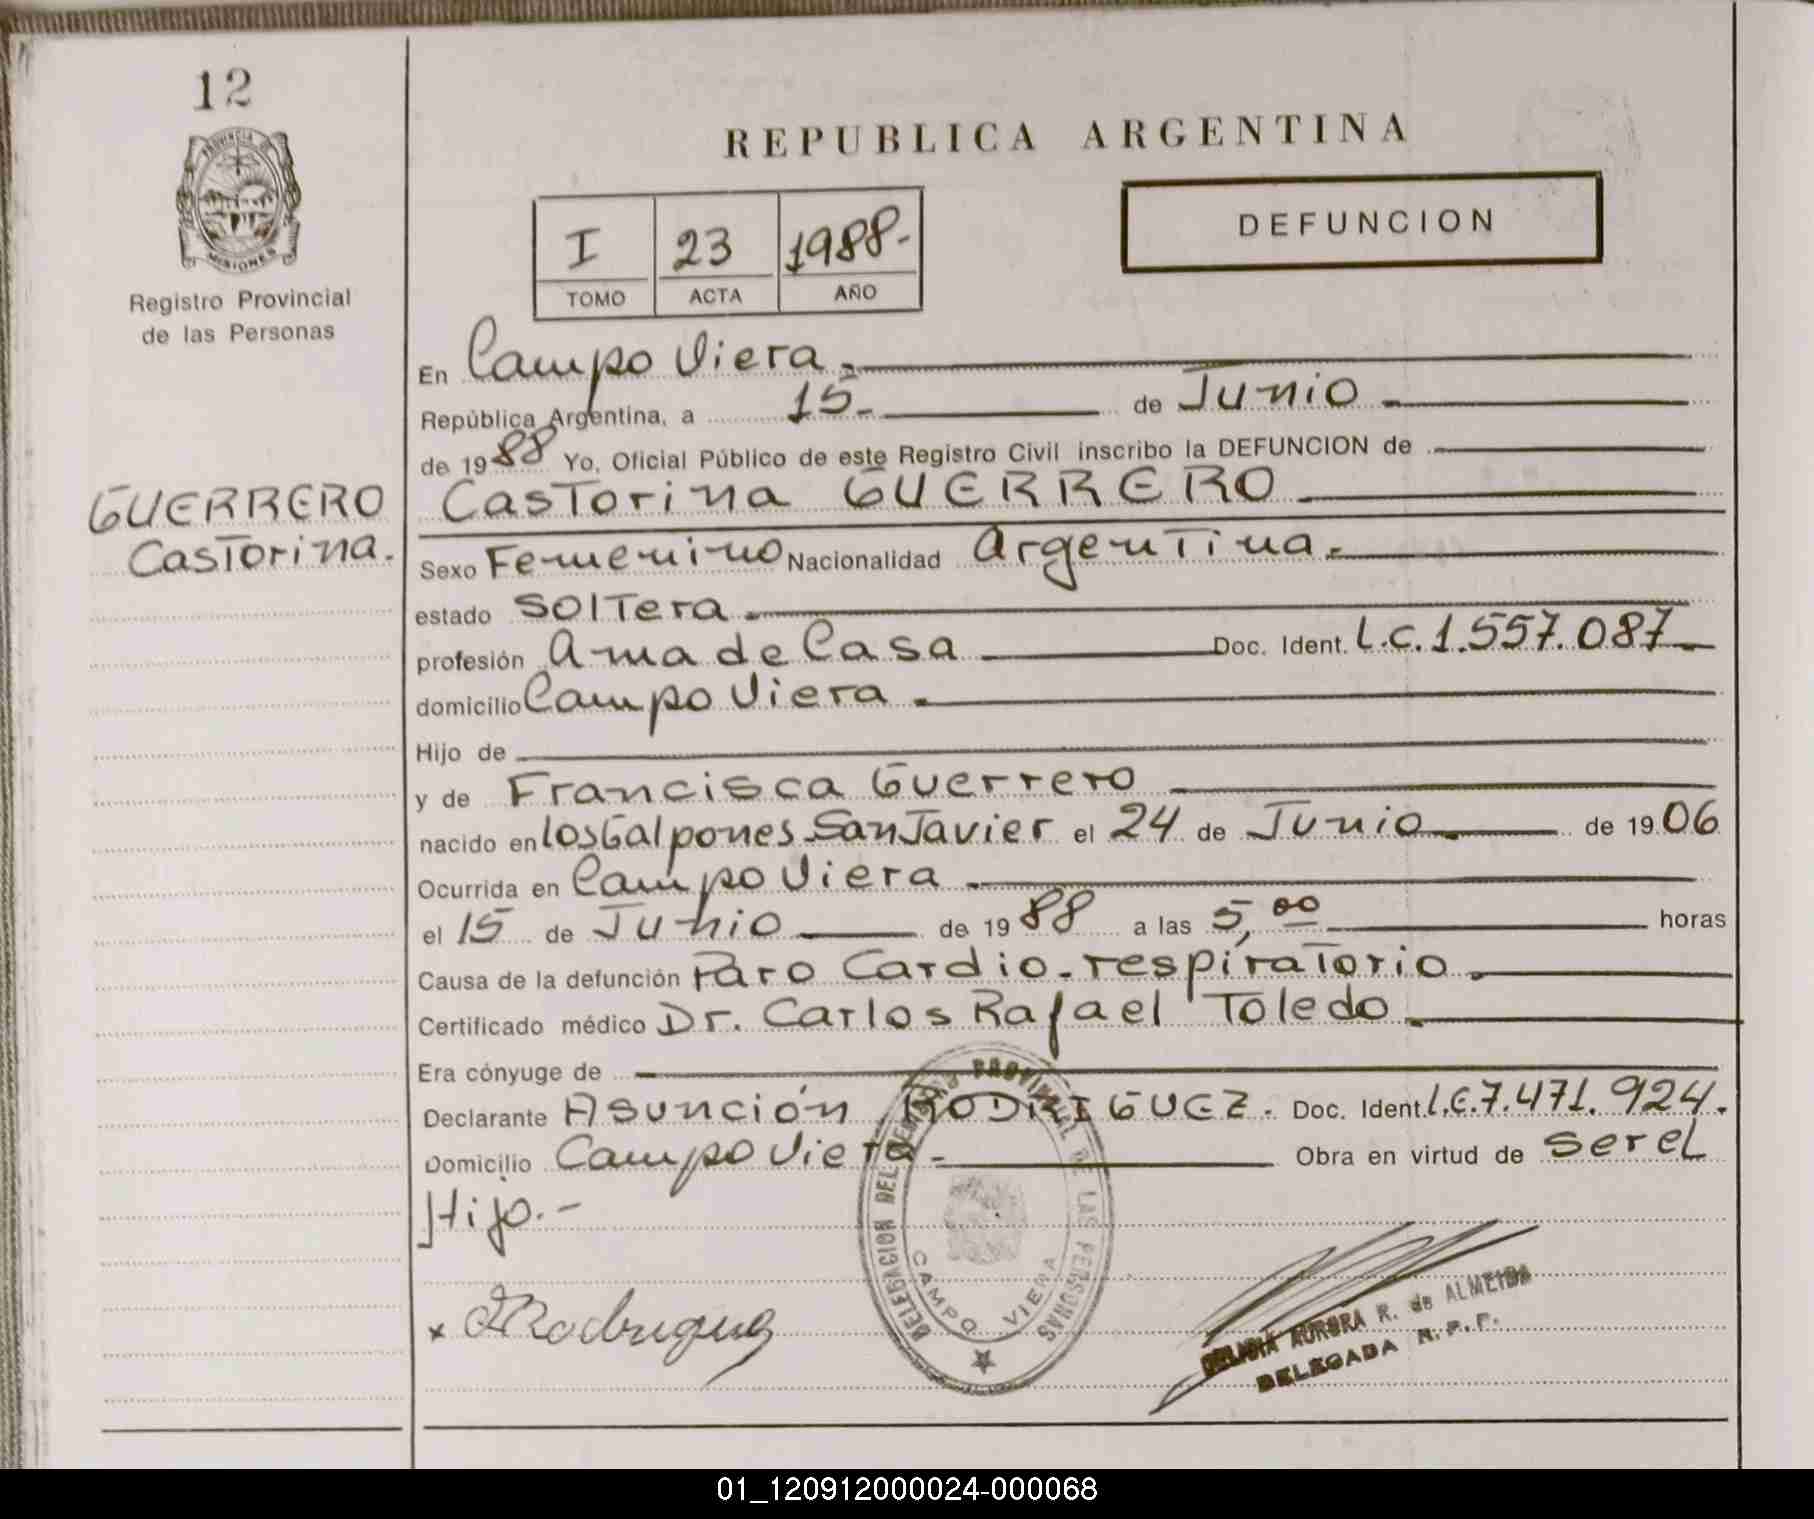 12
PROVINCIA DE
MISIONES
Registro Provincial
de las Personas
GUERRERO
Castorina.
REPUBLICA ARGENTINA
I 23 1988.-
TOMO ACTA AÑO
DEFUNCION
En Campo Viera.
República Argentina, a 15. de Junio
de 1988 Yo, Oficial Público de este Registro Civil inscribo la DEFUNCION de
Castorina GUERRERO
Sexo Femenino Nacionalidad Argentina.
estado Soltera.
profesión Ama de Casa Doc. Ident. L.C.1.557.087
domicilio Campo Viera.
Hijo de
y de Francisca Guerrero
nacido en Los Galpones San Javier el 24 de Junio de 1906
Ocurrida en Campo Viera
el 15 de Junio de 1988 a las 5,00 horas
Causa de la defunción Paro Cardio-respiratorio.
Certificado médico Dr. Carlos Rafael Toledo.
Era cónyuge de
Declarante Asunción RODRIGUEZ. Doc. Ident. L.E.7.471.924.
Domicilio Campo Viera.- Obra en virtud de ser el
Hijo.-
DELEGACION DEL REGISTRO PROVINCIAL DE LAS PERSONAS
CAMPO VIERA
x Rodriguez
DELICIA AURORA R. de ALMEIDA
DELEGADA R.P.P.
01_120912000024-000068